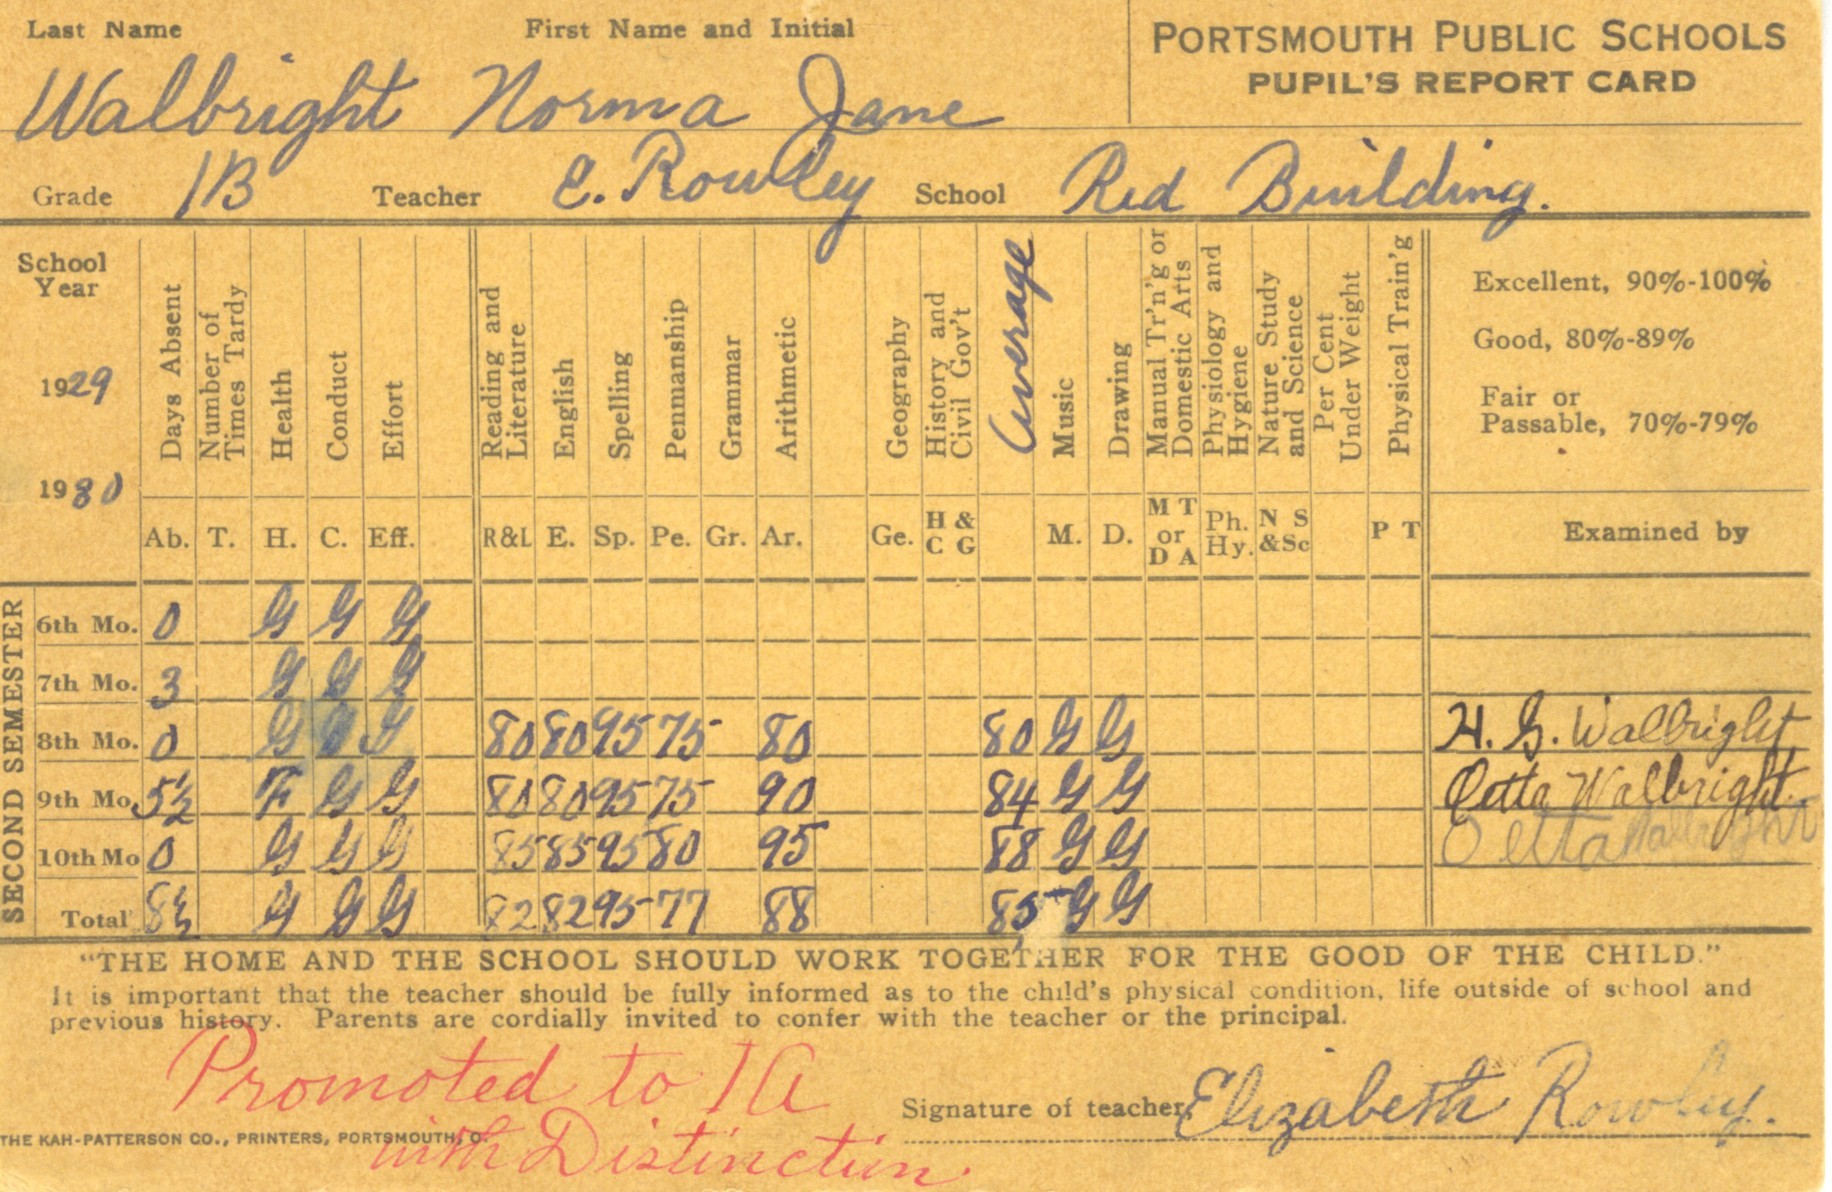 Last Name First Name and Initial
PORTSMOUTH PUBLIC SCHOOLS
PUPIL'S REPORT CARD
Walbright Norma Jane
Grade 1B Teacher E. Rowley School Red Building.
School Year
1929
1930
Days Absent
Number of Times Tardy
Health
Conduct
Effort
Reading and Literature
English
Spelling
Penmanship
Grammar
Arithmetic
Geography
History and Civil Gov't
Average
Music
Drawing
Manual Tr'n'g or Domestic Arts
Physiology and Hygiene
Nature Study and Science
Per Cent Under Weight
Physical Train'g
Excellent, 90%-100%
Good, 80%-89%
Fair or
Passable, 70%-79%
Ab. T. H. C. Eff. R&L E. Sp. Pe. Gr. Ar. Ge. H & C G M. D. M T or D A Ph. Hy. N S &Sc P T Examined by
SECOND SEMESTER
6th Mo. 0 G G G
7th Mo. 3 G G G
8th Mo. 0 G G 80 80 95 75 80 80 G G H. G. Walbright
9th Mo. 5½ F G G 80 80 95 75 90 84 G G Oetta Walbright.
10th Mo 0 G G G 85 85 95 80 95 88 G G Oetta Walbright
Total 8½ G G G 82 82 95 77 88 85 G G
"THE HOME AND THE SCHOOL SHOULD WORK TOGETHER FOR THE GOOD OF THE CHILD."
It is important that the teacher should be fully informed as to the child's physical condition, life outside of school and
previous history. Parents are cordially invited to confer with the teacher or the principal.
Promoted to 1A
with Distinction.
Signature of teacher Elizabeth Rowley.
THE KAH-PATTERSON CO., PRINTERS, PORTSMOUTH, O.